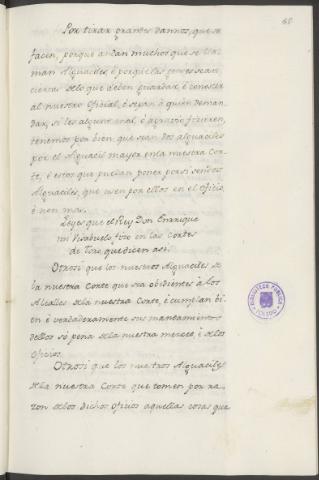 68
Por tirar grandes dannos, que se
facen, porque andan muchos que se lla-
man Alguaciles, è porque las gentes sean
ciertas de lo que deben guardar, è conoscer
al nuestro Oficial, è sepan à quien deman-
dar, si les algunt mal, è agravio ficieren,
tenemos por bien, que sean dos alguaciles
por el Alguacil mayor en la nuestra Cor-
te, è estos que puedan poner por si sendos
Alguaciles, que usen por ellos en el Oficio,
è non mas.
Leyes que el Rey Don Enrrique
mi Visabuelo, fizo en las Cortes
de Toro, que dicen asi.
Otrosi que los nuestros Alguaciles de
la nuestra Corte que sea obidientes à los
Alcalles de la nuestra Corte, è cumplan bi-
en è verdaderamente sus mandamientos
dellos sò pena de la nuestra merced, è de los
Oficios.
Otrosi que los nuestros Alguaciles
de la nuestra Corte que tomen por ra-
zon de los dichos Oficios aquellas cosas que
BIBLIOTECA PUBLICA
TOLEDO